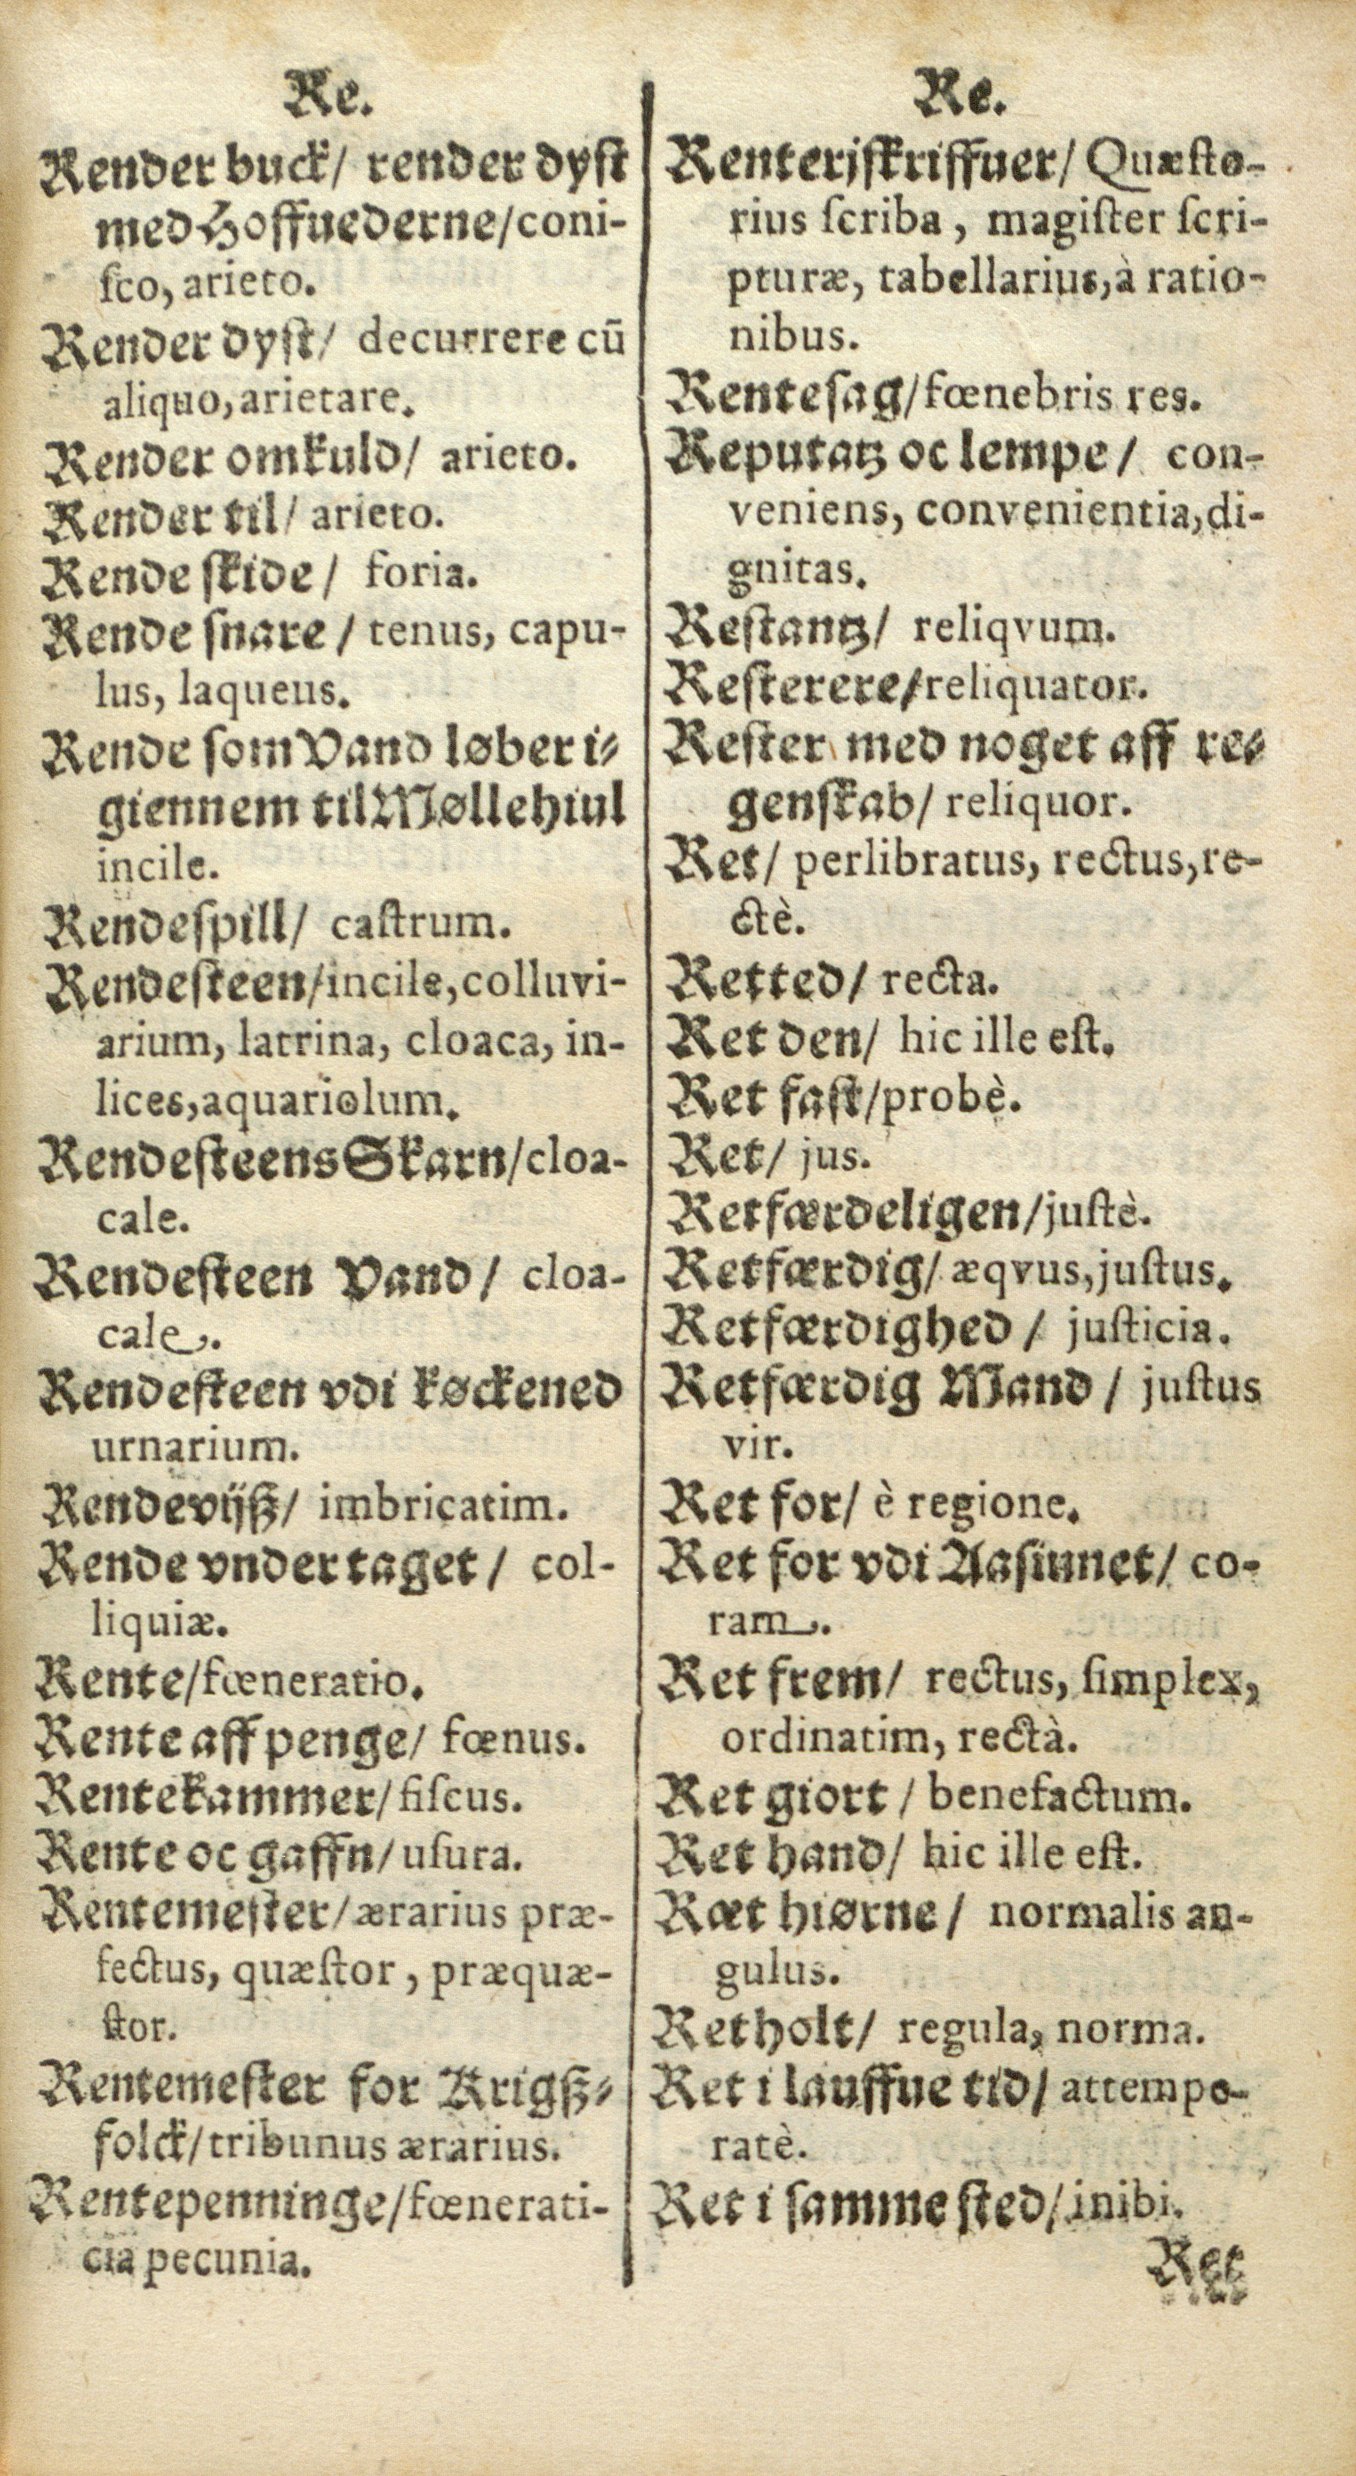 Re.
Render buck/ render dyſt
med Hoffuederne/coni-
ſco, arieto.
Render dyſt/ decurrere cū
aliquo, arietare.
Render omkuld/ arieto.
Render til/ arieto.
Rende ſkide/ foria.
Rende ſnare/ tenus, capu-
lus, laqueus.
Rende ſom Vand løber i-
giennem til Møllehiul
incile.
Rendeſpill/ caſtrum.
Rendeſteen/incile, colluvi-
arium, latrina, cloaca, in-
lices, aquariolum.
Rendeſteens Skarn/cloa-
cale.
Rendeſteen Vand/ cloa-
cale.
Rendeſteen vdi køckened
urnarium.
Rendevijß/ imbricatim.
Rende vnder taget/ col-
liquiæ.
Rente/fœneratio.
Rente aff penge/ fœnus.
Rentekammer/fiſcus.
Rente oc gaffn/uſura.
Rentemeſter/ærarius præ-
fectus, quæſtor, præquæ-
ſtor.
Rentemeſter for Krigß-
folck/tribunus ærarius.
Rentepenninge/fœnerati-
cia pecunia.
Re.
Renterjſkriffuer/ Quæſto-
rius ſcriba, magiſter ſcri-
pturæ, tabellarius, à ratio-
nibus.
Renteſag/fœnebris res.
Reputatz oc lempe/ con-
veniens, convenientia, di-
gnitas.
Reſtantz/ reliqvum.
Reſterere/reliquator.
Reſter med noget aff re-
genſkab/ reliquor.
Ret/ perlibratus, rectus, re-
ctè.
Retted/ recta.
Ret den/ hic ille eſt.
Ret faſt/probè.
Ret/ jus.
Retfærdeligen/juſtè.
Retfærdig/ æqvus, juſtus.
Retfærdighed/ juſticia.
Retfærdig Mand/ juſtus
vir.
Ret for/ è regione.
Ret for vdi Aaſiunet/ co-
ram.
Ret frem/ rectus, ſimplex,
ordinatim, rectà.
Ret giort/ benefactum.
Ret hand/ hic ille eſt.
Ræt hiørne/ normalis an-
gulus.
Retholt/ regula, norma.
Ret i lauffue tid/ attempo-
ratè.
Ret i ſamme ſted/inibi.
Ret